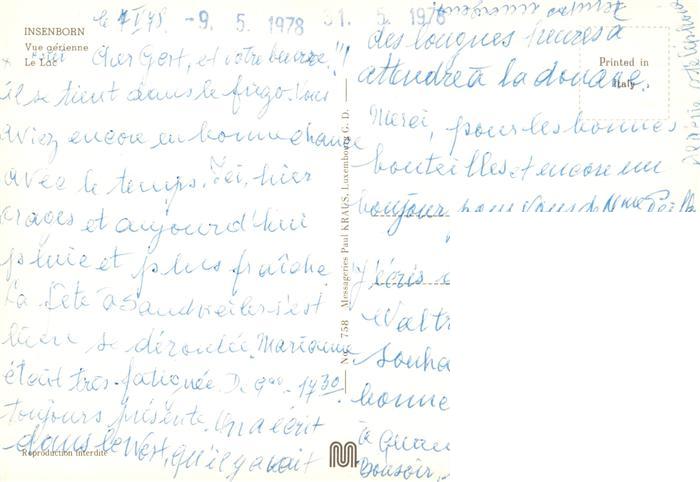 INSENBORN
Vue aérienne
Le Lac
-9. 5. 1978
31. 5. 1978
Cher Gert, et votre beurre!!
il se tient dans le frigo. Vous
aviez encore eu bonne chance
avec le temps. Ici, hier
orages et aujourd'hui
pluie et plus fraîche
La fête à Sandweiler s'est
bien se déroulée. Marianne
était très fatiguée. De 9 - 17 30
toujours présente. On a écrit
dans le Wort, qu'il y avait
des longues heures à
attendre à la douane.
Merci, pour les bonnes
bouteilles et encore un
bonjour pour vous de Mme
J'écris
Walt
souha
bonne
à
Bonsoir,
Printed in
Italy
No. 758 Messageries Paul KRAUS, Luxembourg G. D.
Reproduction interdite